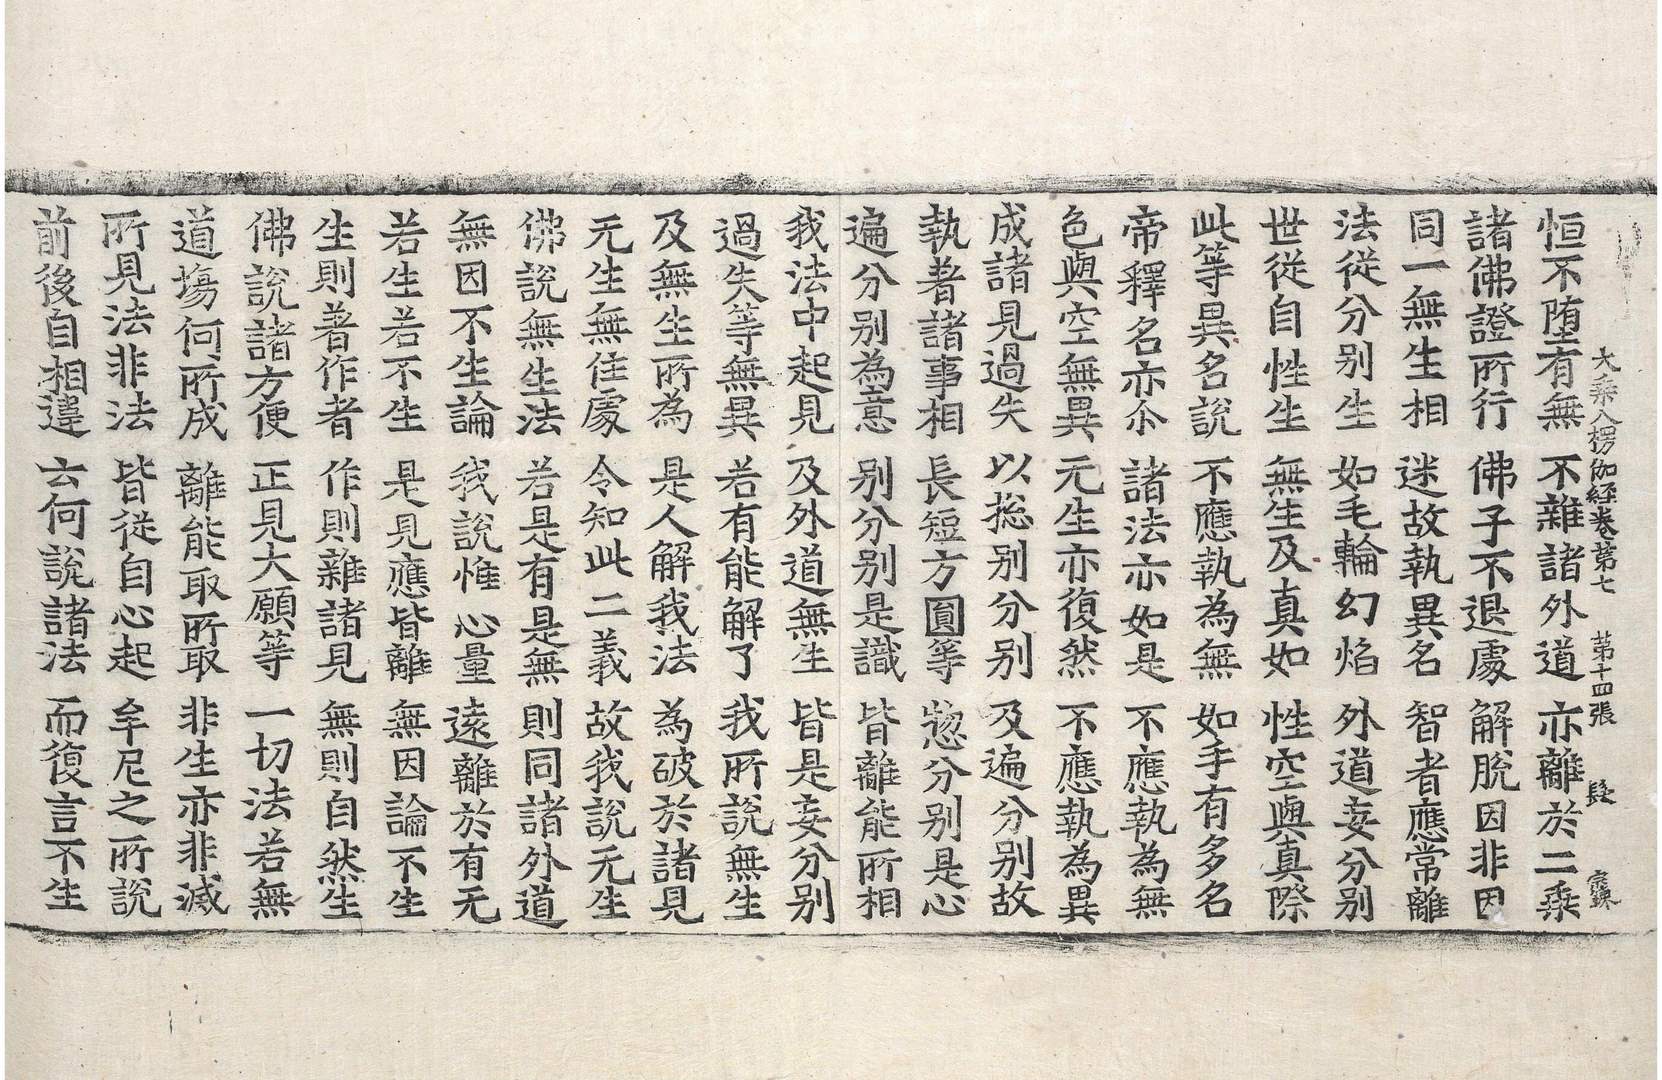 大乘入楞伽經卷第七　第十四張　髮
恒不墮有無　不雜諸外道　亦離於二乘
諸佛證所行　佛子不退處　解脫因非因
同一無生相　迷故執異名　智者應常離
法從分別生　如毛輪幻焰　外道妄分別
世從自性生　無生及真如　性空與真際
此等異名說　不應執為無　如手有多名
帝釋名亦尒　諸法亦如是　不應執為無
色與空無異　无生亦復然　不應執為異
成諸見過失　以捴別分別　及遍分別故
執著諸事相　長短方圓等　惣分別是心
遍分別為意　別分別是識　皆離能所相
我法中起見　及外道無生　皆是妄分別
過失等無異　若有能解了　我所說無生
及無生所為　是人解我法　為破於諸見
无生無住處　令知此二義　故我說无生
佛說無生法　若是有是無　則同諸外道
無因不生論　我說惟心量　遠離於有无
若生若不生　是見應皆離　無因論不生
生則著作者　作則雜諸見　無則自然生
佛說諸方便　正見大願等　一切法若無
道場何所成　離能取所取　非生亦非滅
所見法非法　皆從自心起　牟尼之所說
前後自相違　云何說諸法　而復言不生